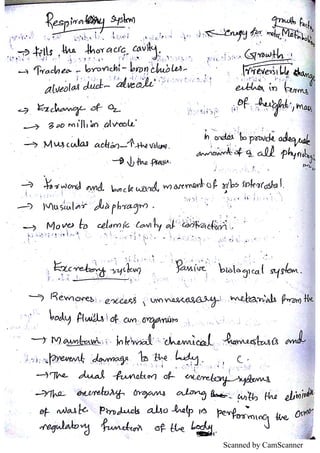 Respiratory system
growth
energy for
→ fills the thoracic cavity.
Growth:
→ Trachea - bronchi - bronchioles.
Irreversible change
alveolal duct - alveole
either in terms
of height, mass
→ Exchange of O2
→ 300 million alveole
in order to provide adequate
→ Muscular action - ↑ the volume.
amount of all
→ ↓ the
→ forword and backword movement of ribs intercostal.
→ Musular diaphragm.
→ Moves to celomic cavity at contraction.
Excretory system
Passive biological system.
→ Removes excess, unnecessary materials from the
body fluids of an organism
→ Maintain internal chemical homeostasis and
prevent damage to the body.
→ The dual function of excretory systems
→ The excretory organs along with the elimination
of waste Products also help is performing the Osmo-
regulatory function of the body.
Scanned by CamScanner